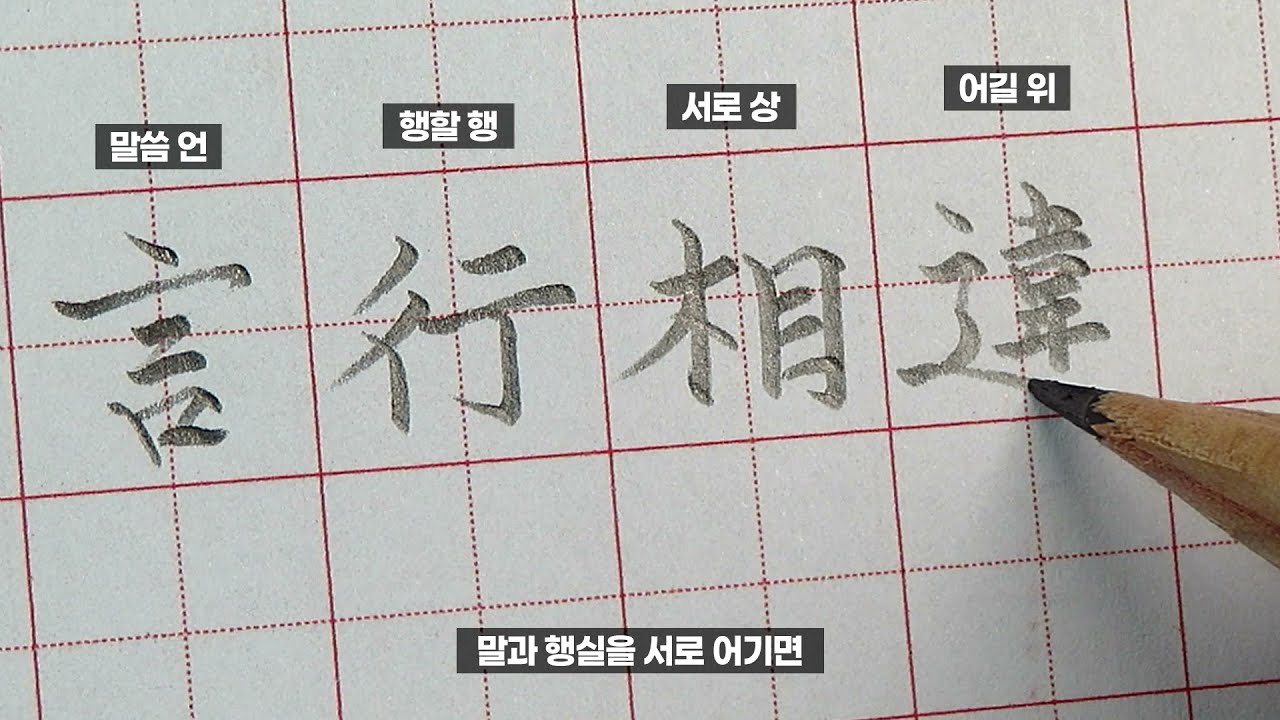 말씀 언 행할 행 서로 상 어길 위
言行相違
말과 행실을 서로 어기면